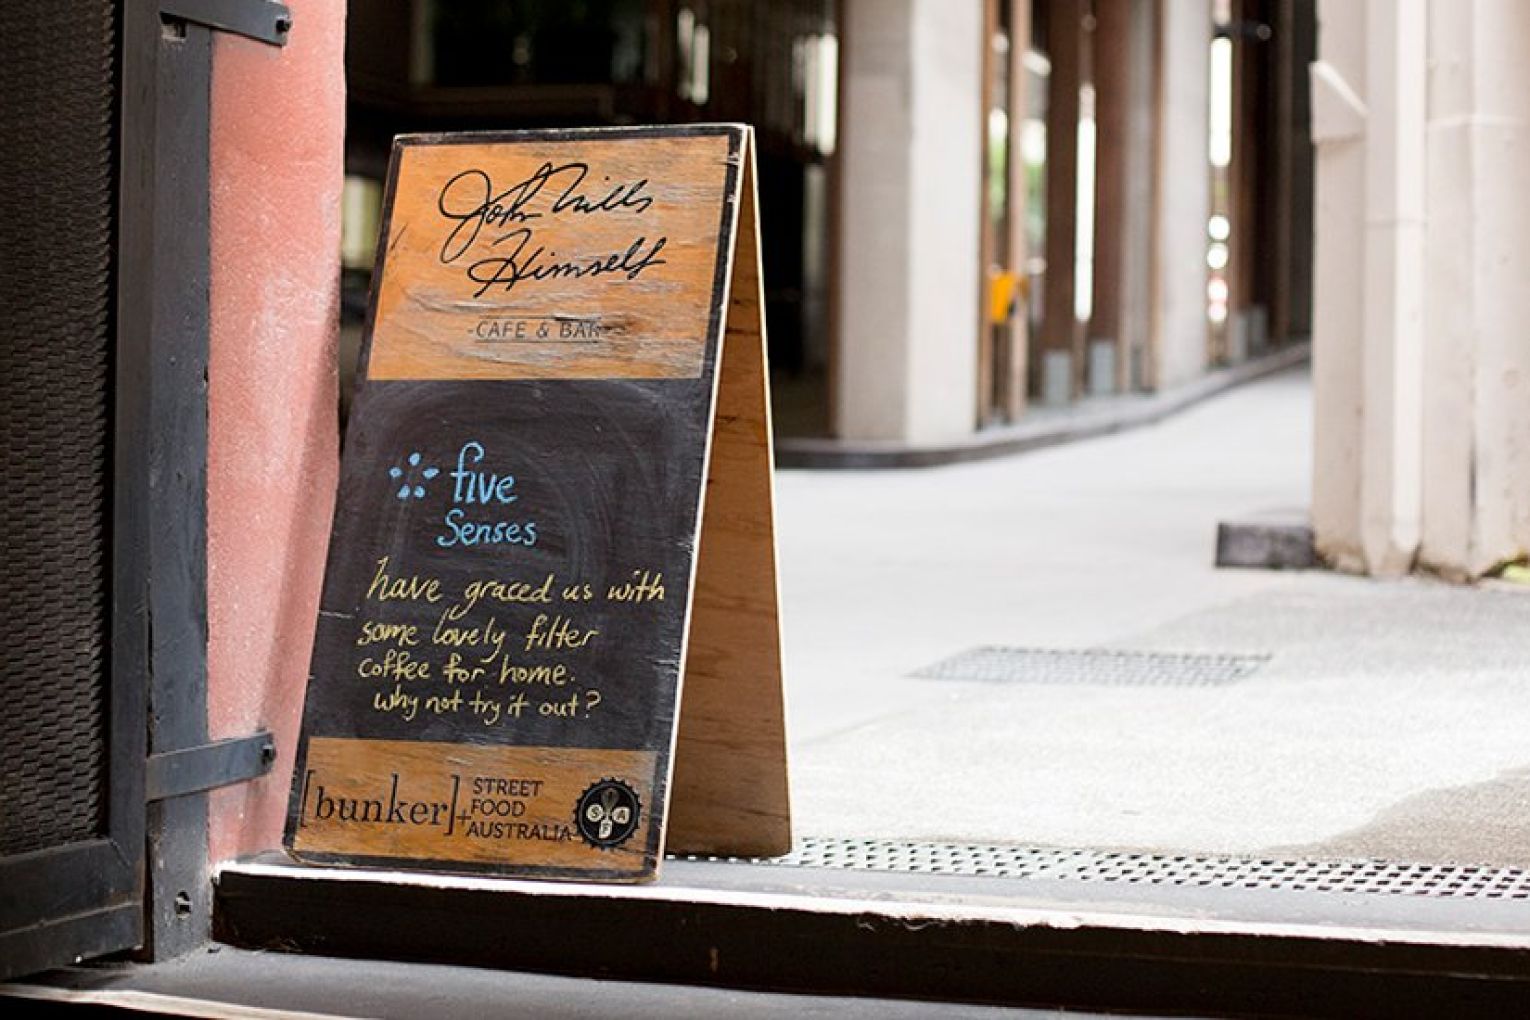 John Mills
Himself
-CAFE & BAR-
five
Senses
have graced us with
some lovely filter
coffee for home.
why not try it out?
[bunker]+
STREET
FOOD
AUSTRALIA
S F A